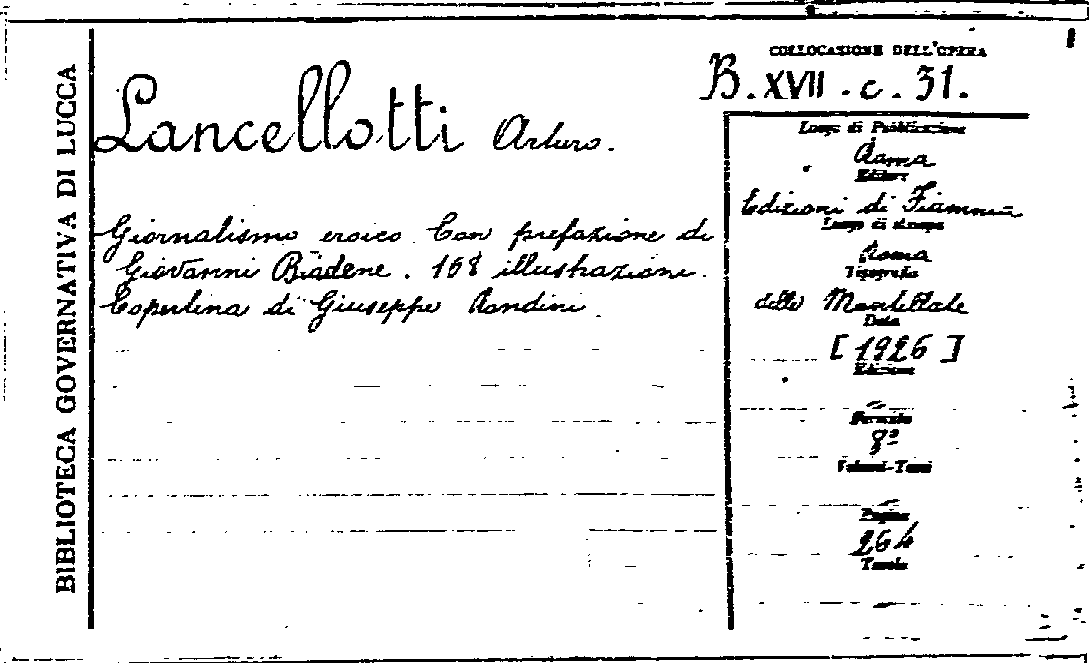 BIBLIOTECA GOVERNATIVA DI LUCCA
COLLOCAZIONE DELL'OPERA
B. XVII. c. 31.
Lancellotti Arturo.
Giornalismo eroico. Con prefazione di
Giovanni Biadene. 168 illustrazioni.
Copertina di Giuseppe Rondini.
Luogo di Pubblicazione
Roma
Editore
Edizioni di Fiamma
Luogo di stampa
Roma
Tipografia
delle Mantellate
Data
[1926]
Edizione
Formato
8º
Volumi-Tomi
Pagine
264
Tavole